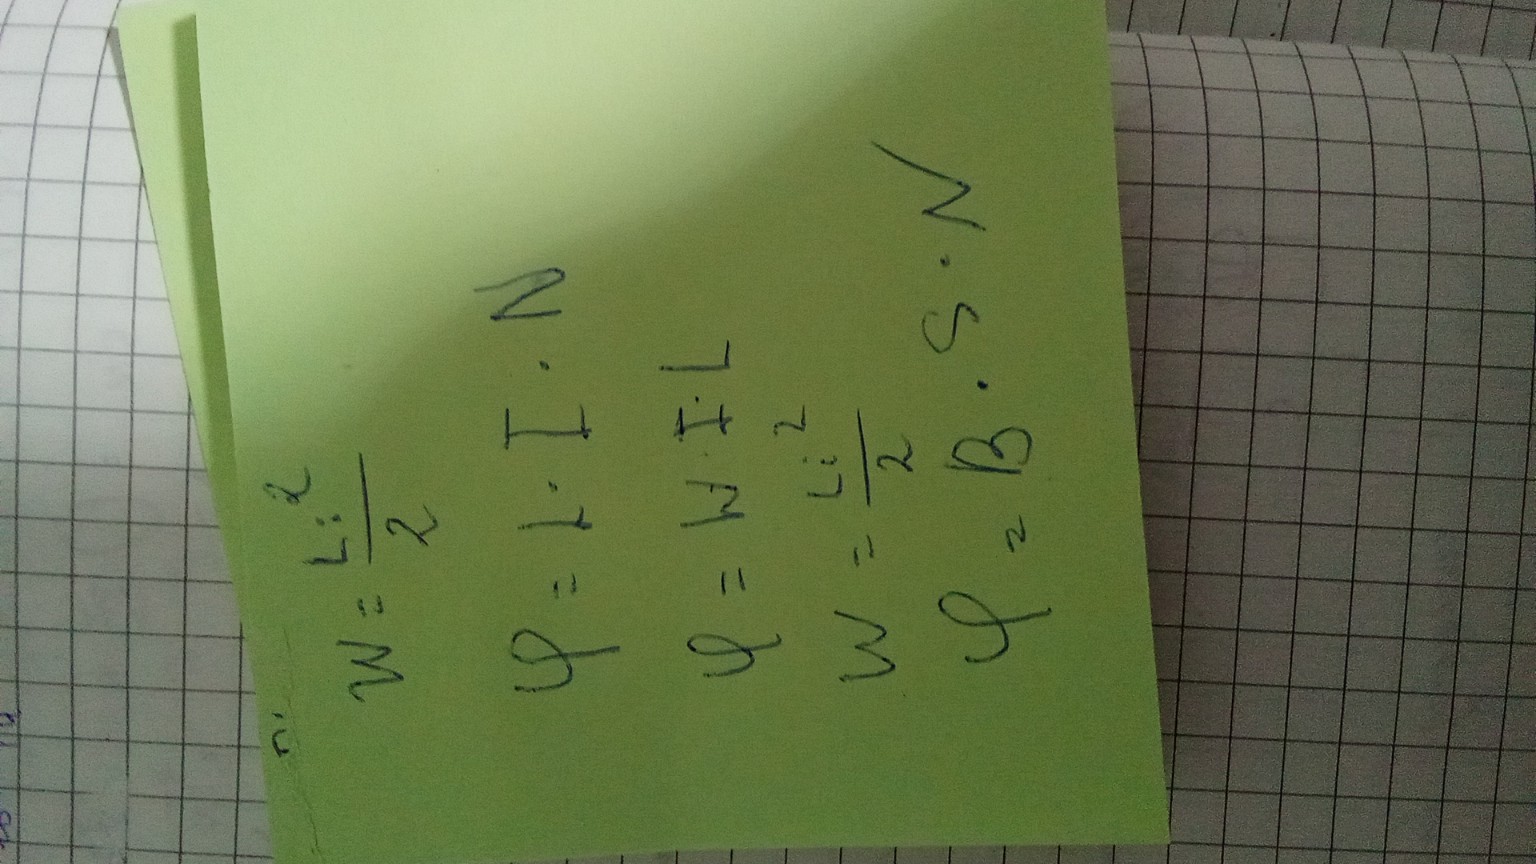 W = Li²/2
φ = L · I · N
φ = W · I · L
W = Li²/2
φ = B · S · N